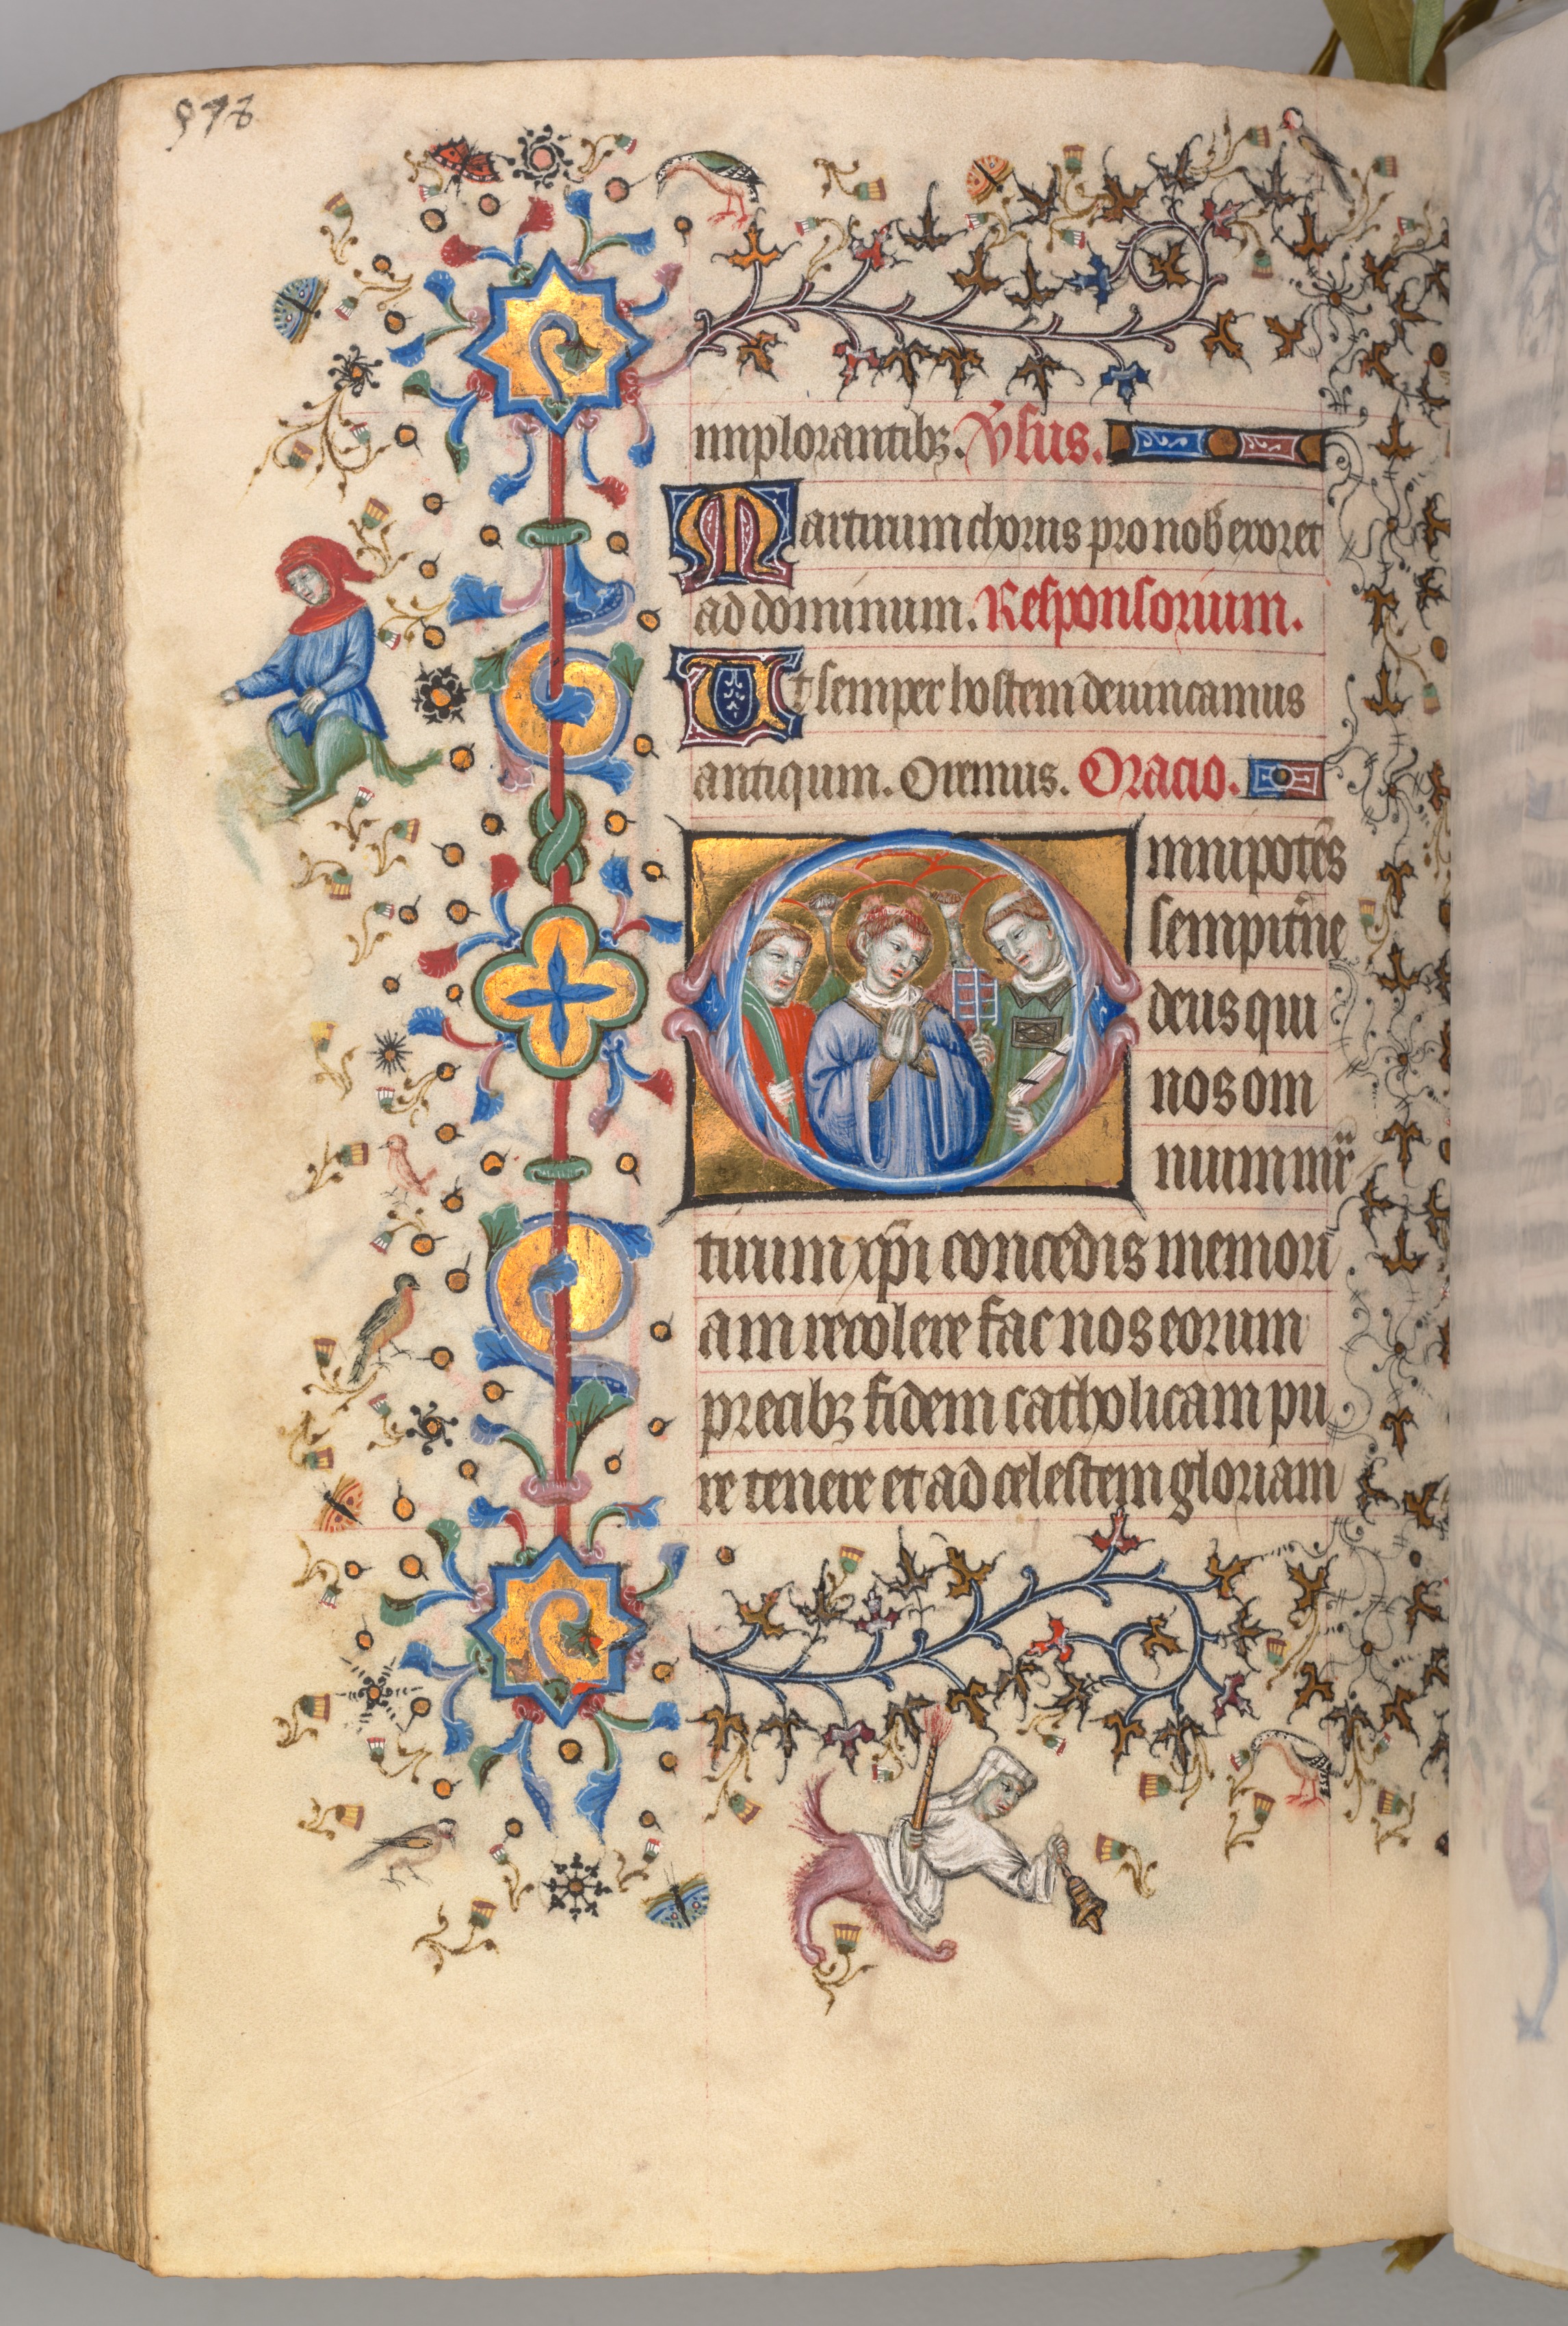 578
implorantibꝫ. V̾sus.
Martirum chorus pro nob̾ exoret
ad dominum. Responsorium.
Ut semper hostem deuincamus
antiqum. Oremus. Oracio.
Omnipotēs
sempit̾ne
deus qui
nos om
nium mar
tirum xp̄i concedis memori
am recolere fac nos eorum
precibꝫ fidem catholicam pu
re tenere et ad celestem gloriam